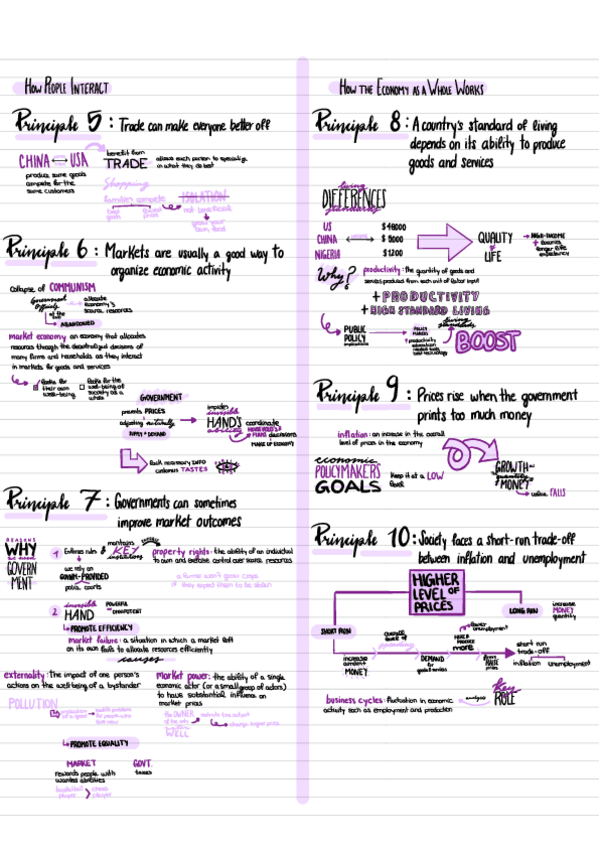 HOW PEOPLE INTERACT
Principle 5: Trade can make everyone better off
CHINA ↔ USA
produce some goods
compete for the
same customers
benefit from
TRADE
allows each person to specialize
in what they do best
Shopping
families compete
best
goods
lowest
prices
ISOLATION
not beneficial
grow your
own food
Principle 6: Markets are usually a good way to
organize economic activity
Collapse of COMMUNISM
Government
officials
allocate
economy's
scarce resources
ABANDONED
market economy: an economy that allocates
resources through the decentralized decisions of
many firms and households as they interact
in markets for goods and services
their own
well-being
the well-being of
society as a
whole
GOVERNMENT
prevents PRICES
adjusting naturally
SUPPLY + DEMAND
impedes
invisible
HAND'S
ability
coordinate
HOUSEHOLDS
FIRMS decisions
MAKE UP ECONOMY
lack necessary INFO
customer TASTES
Principle 7: Governments can sometimes
improve market outcomes
REASONS
WHY
we need
GOVERN
MENT
1 Enforces rules & maintains
KEY
institutions
we rely on
GOVERN-PROVIDED
police, courts
property rights: the ability of an individual
to own and exercise control over scarce resources
a farmer won't grow crops
if they expect them to be stolen
2 invisible
HAND
POWERFUL
OMNIPOTENT
PROMOTE EFFICIENCY
market failure: a situation in which a market left
on its own fails to allocate resources efficiently
causes
externality: the impact of one person's
actions on the well-being of a bystander
POLLUTION
market power: the ability of a single
economic actor (or a small group of actors)
to have substantial influence on
market prices
the OWNER
of the only
WELL
charge higher price
PROMOTE EQUALITY
MARKET
rewards people with
wanted abilities
GOVT.
taxes
basketball
player
>
chess
player
HOW THE ECONOMY AS A WHOLE WORKS
Principle 8: A country's standard of living
depends on its ability to produce
goods and services
living
DIFFERENCES
standards
US
CHINA
NIGERIA
INCOME
QUALITY
of
LIFE
HIGH-INCOME
longer life
expectancy
Why?
productivity: the quantity of goods and
services produced from each unit of labor input
+ PRODUCTIVITY
+ HIGH STANDARD LIVING
PUBLIC
POLICY
implications
POLICY
MAKERS
↑ productivity
education
needed tools
best technology
living
standards
BOOST
Principle 9: Prices rise when the government
prints too much money
inflation: an increase in the overall
level of prices in the economy
economic
POLICYMAKERS
GOALS
Keep it at a LOW
level
GROWTH
quantity of
MONEY
value FALLS
Principle 10: Society faces a short-run trade-off
between inflation and unemployment
HIGHER
LEVEL OF
PRICES
SHORT RUN
LONG RUN
increase
MONEY
quantity
increase
amount of
MONEY
overall
level of
spending
DEMAND
for
goods/services
HIRE &
PRODUCE
more
lower
unemployment
firms
RAISE
prices
short run
trade-off
inflation
unemployment
business cycles: fluctuation in economic
activity such as employment and production
analysis
Key
ROLE